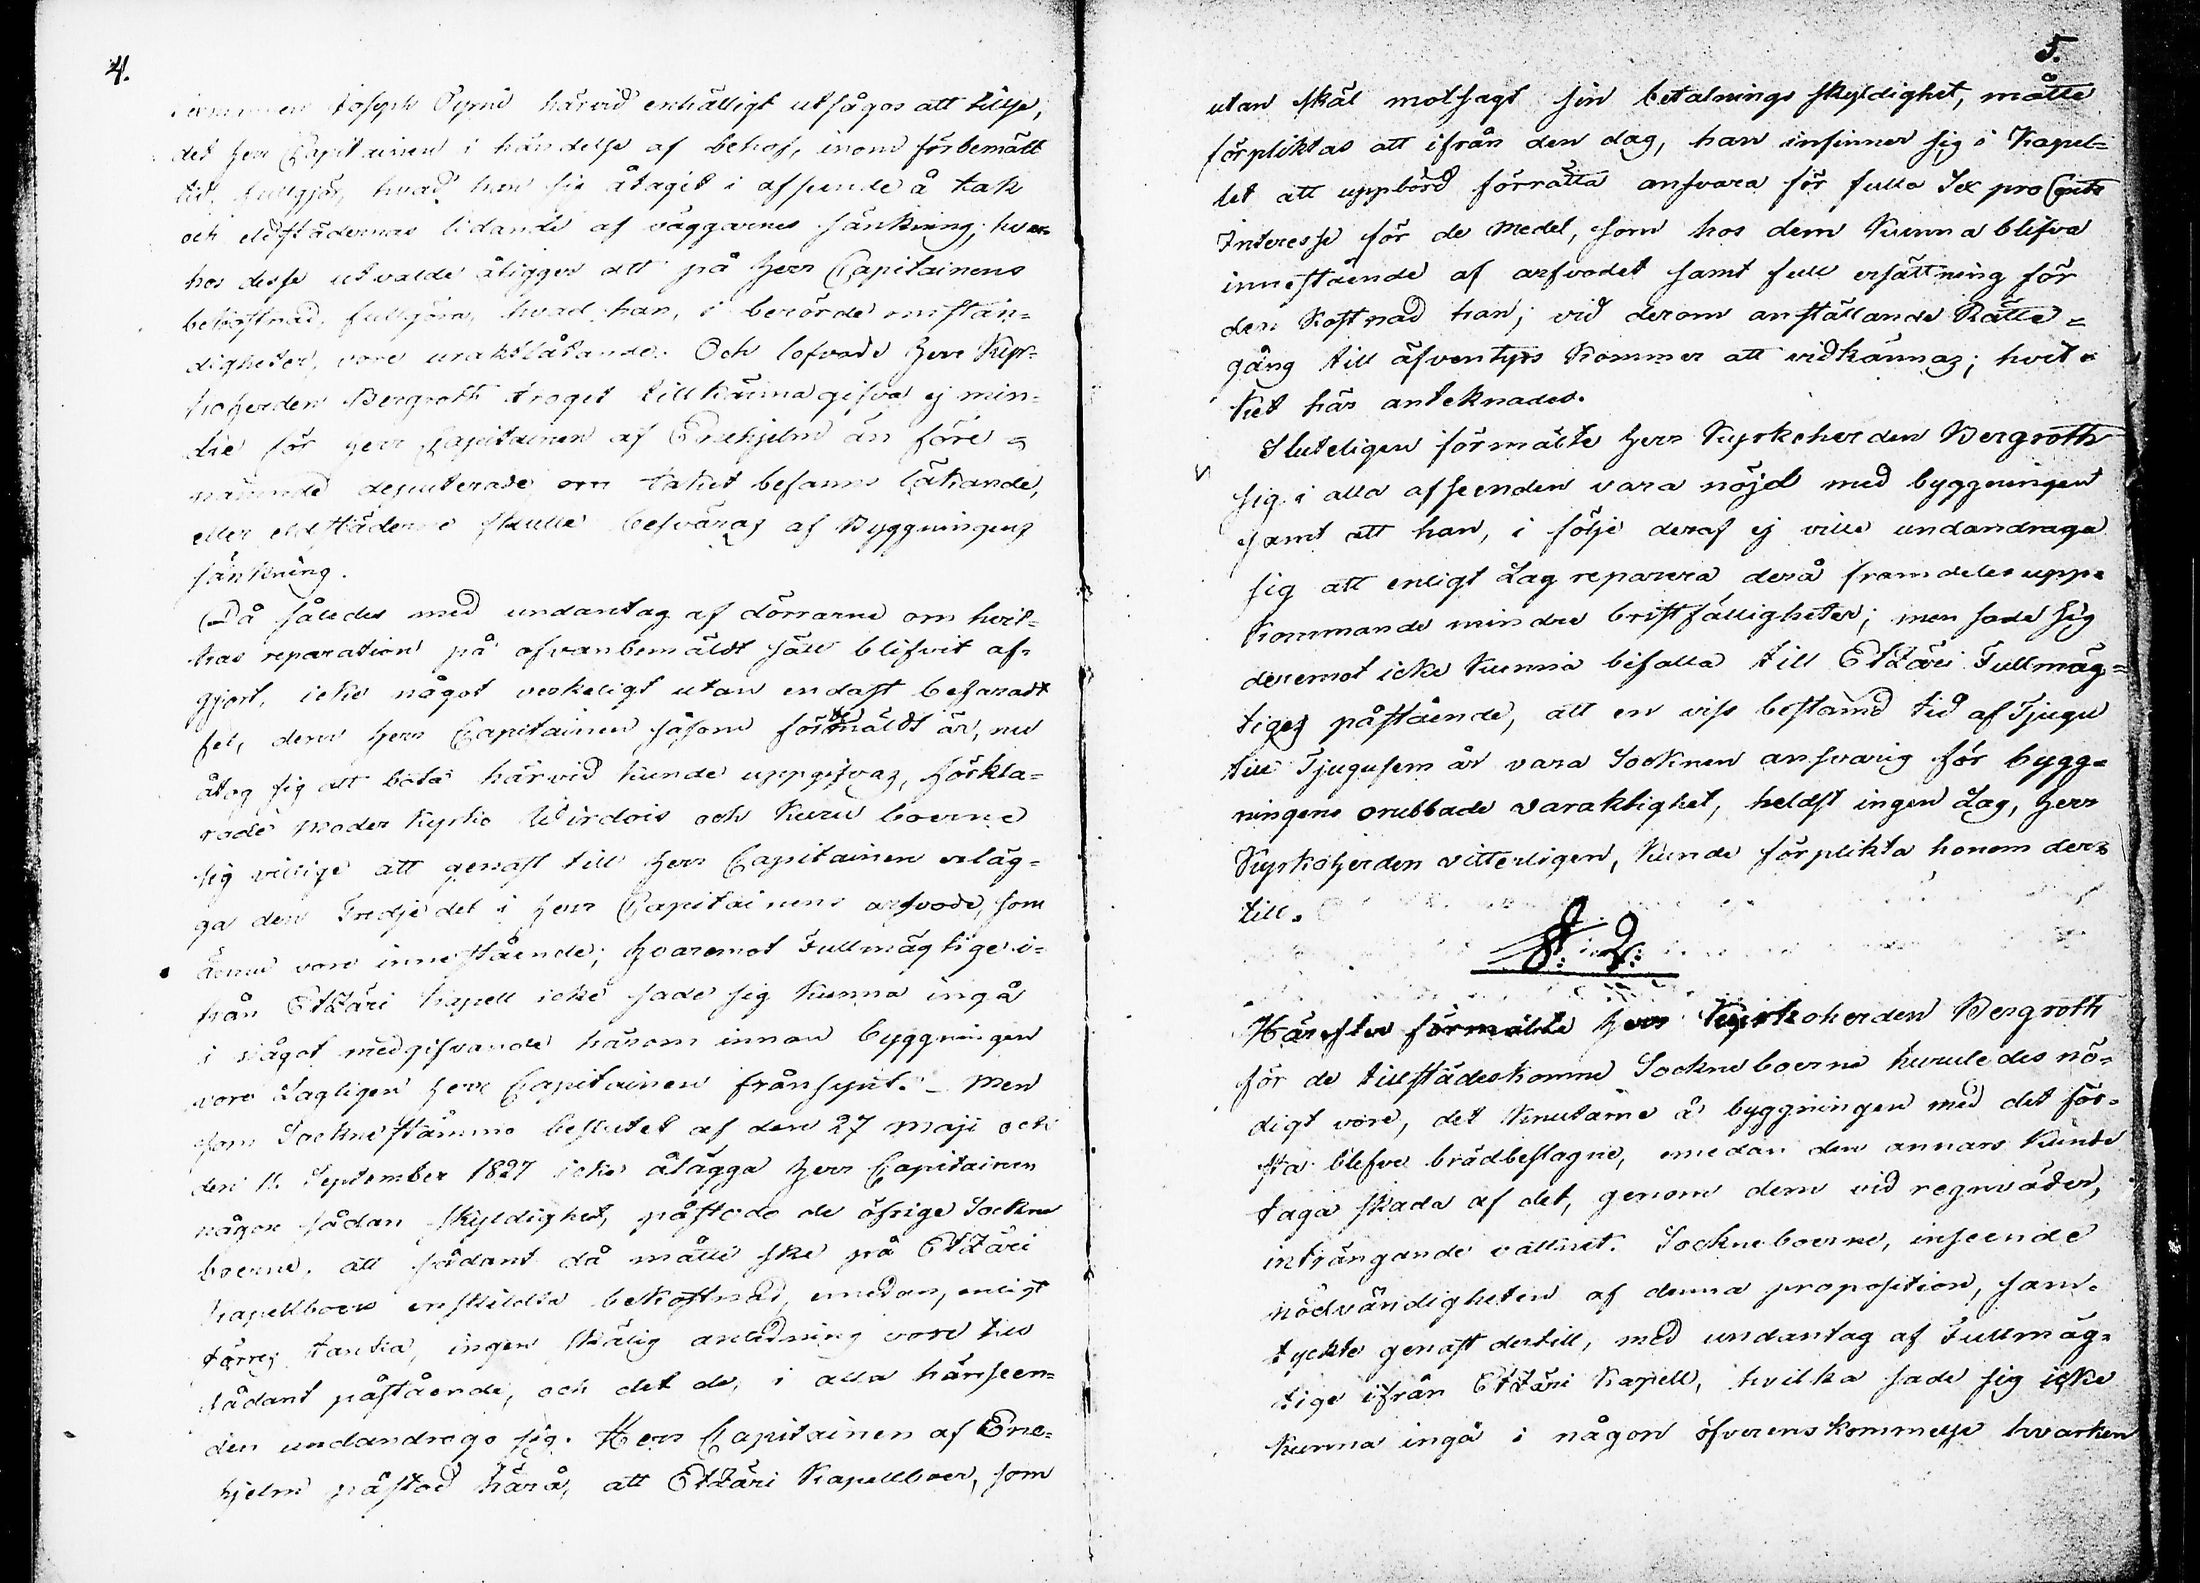 4.
Joseph härvid enhälligt utsågos att tillse,
det herr Capitainen i händelse af behof, inom förbemält
tid, fullgjör, hvad han sig åtagit i afseende å tak
och eldstädernas lidande af väggarnes sänkning; hvar-
hos desse utvalde åligger att på herr Capitainens
bekostnad, fullgöra, hvad han, i berörde omstän-
digheter, vore uraktlåtande. Och lofvade herr Kyr-
koherden Bergroth troget tillkänna gifva ej min-
dre för herr Capitainen af Enehjelm än före-
nämnde deputerade om taket befanns läkande,
eller eldstäderne skulle besväras af Byggningens
sänkning.
Då således med undantag af dörrarne om hvil-
kas reparation på ofvanbemäldt sätt blifvit af-
gjort, icke något verkeligt utan endast befaradt
fel, dem herr Capitainen såsom förmäldt är, nu
åtog sig att bota härvid kunde uppgifvas, förkla-
rade Moder kyrko Wirdois och Kuru boerne
sig villige att genast till herr Capitainen erläg-
ga den Tredjedel i herr Capitainens arfvode, som
ännu vore innestående; hvaremot Fullmägtige i-
från Etzäri Kapell icke sade sig kunna ingå
i något medgifvande härom innan byggningen
vore Lagligen herr Capitainen afrånsynt. - Men
som Sockne stämmo beslutet af den 27 Maji och
den 11. September 1827 icke ålägga herr Capitainen
någon sådan skyldighet, påstodo de öfrige Sockne
boerne, att sådant då måtte ske på Etzäri
Kapellboers enskildta bekostnad, emedan, enligt
tanka, ingen skälig anledning vore till
sådant påstående, och det de, i alla hänseen-
den undandrogo sig. Herr Capitainen af Ene-
hjelm påstod härå, att Etzäri Kapellboer, som
5.
utan skäl motsagt sin betalnings skyldighet, måtte
förpliktas att ifrån den dag, han infinner sig i Kapel-
let att uppbörd förrätta ansvara för fulla Sex pro Cents
Interesse för de medel, som hos dem kunna blifva
innestående af arfvodet samt full ersättning för
den kostnad han, vid derom anställande Rätte-
gång till äfventyrs kommer att vidkännas; hvil-
ket här antecknades.
Sluteligen förmälte herr Kyrkoherden Bergroth
sig i alla afseenden vara nöjd med byggningen
samt att han, i följe deraf ej ville undandraga
sig att enligt Lag reparera derå framdeles upp-
kommande mindre bristfälligheter; men sade sig
deremot icke kunna bifalla till Etzäri Fullmäg-
tiges påstående, att en viss bestämd tid af Tjugu
till Tjugufem år vara Socknen ansvarig för bygg-
ningens orubbade varaktighet, heldst ingen Lag, herr
Kyrkoherden vitterligen, kunde förplikta honom der-
till.
§. 2.
Härefter förmälte herr Kyrkoherden Bergroth
för de tillstädeskomne Sockneboerne huruledes nö-
digt vore, det knutarne å byggningen med det för-
sta blefve brädbeslagne, emedan den annars kunde
taga skada af det, genom dem vid regnväder,
inträngande vattnet. Sockneboerne, inseende
nödvändigheten af denna proposition, sam-
tyckte genast dertill, med undantag af Fullmäg-
tige ifrån Etzäri Kapell, hvilka sade sig icke
kunna ingå i någon öfverenskommelse hvarken